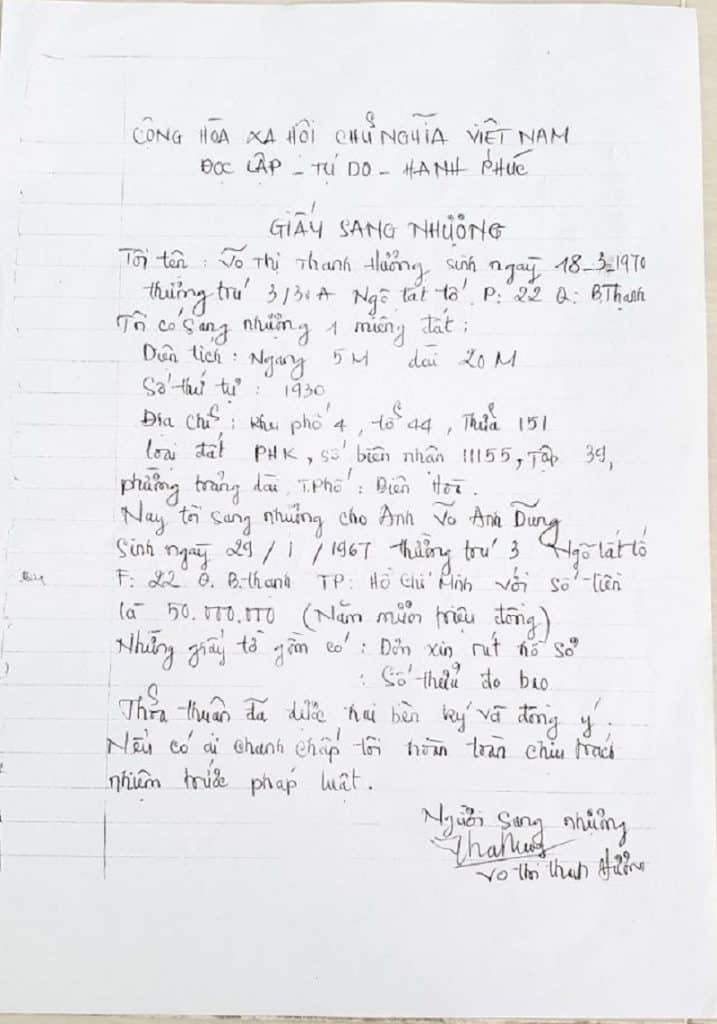 CÔNG HÒA XA HÔI CHỦ NGHĨA VIỆT NAM
ĐỌC LẬP - TỰ DO - HANH PHÚC
GIẤY SANG NHƯỢNG
Tôi tên : Võ Thị Thanh Hưởng sinh ngaỳ 18-3-1970
thường trú 3/30A Ngô tất tố. P: 22 Q: B.Thạnh
Tôi có sang nhượng 1 miếng đất :
Diện tích : Ngang 5M dài 20M
Số thứ tự : 1930
Địa chỉ : khu phố 4, tổ 44, Thửa 151
loại đất PHK, số biên nhân 11155, Tập 39,
phường trảng dài, T.Phố : Biên Hòa.
Nay tôi sang nhượng cho Anh Võ Anh Dũng
Sinh ngaỳ 29/1/1967 thường trú 3 Ngô tất tố
F: 22 Q. B.thạnh TP: Hồ Chí Minh với số tiền
là 50.000.000 (Năm mươi triệu đồng)
Những giấy tờ gồm có : Đơn xin rút hồ sơ
: Số thửa đo bao
Thỏa thuân đã được hai bên ký và đồng ý.
Nếu có ai chanh chấp tôi hoàn toàn chiụ trách
nhiệm trước pháp luật.
Người sang nhượng
Võ thị thanh Hưởng